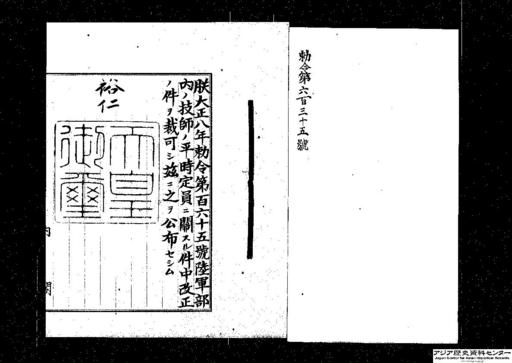 勅令第六百三十五號
朕大正八年勅令第百六十五號陸軍部
內ノ技師ノ平時定員ニ關スル件中改正
ノ件ヲ裁可シ玆ニ之ヲ公布セシム
裕仁
天皇
御璽
內閣
アジア歴史資料センター
Japan Center for Asian Historical Records